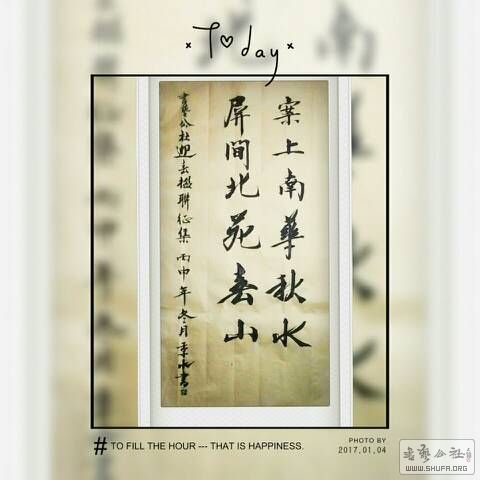 Today
案上南華秋水
屏間北苑春山
書藝公社迎春楹聯征集丙申年冬月
# TO FILL THE HOUR --- THAT IS HAPPINESS.
PHOTO BY
2017.01.04
書藝公社
WWW.SHUFA.ORG